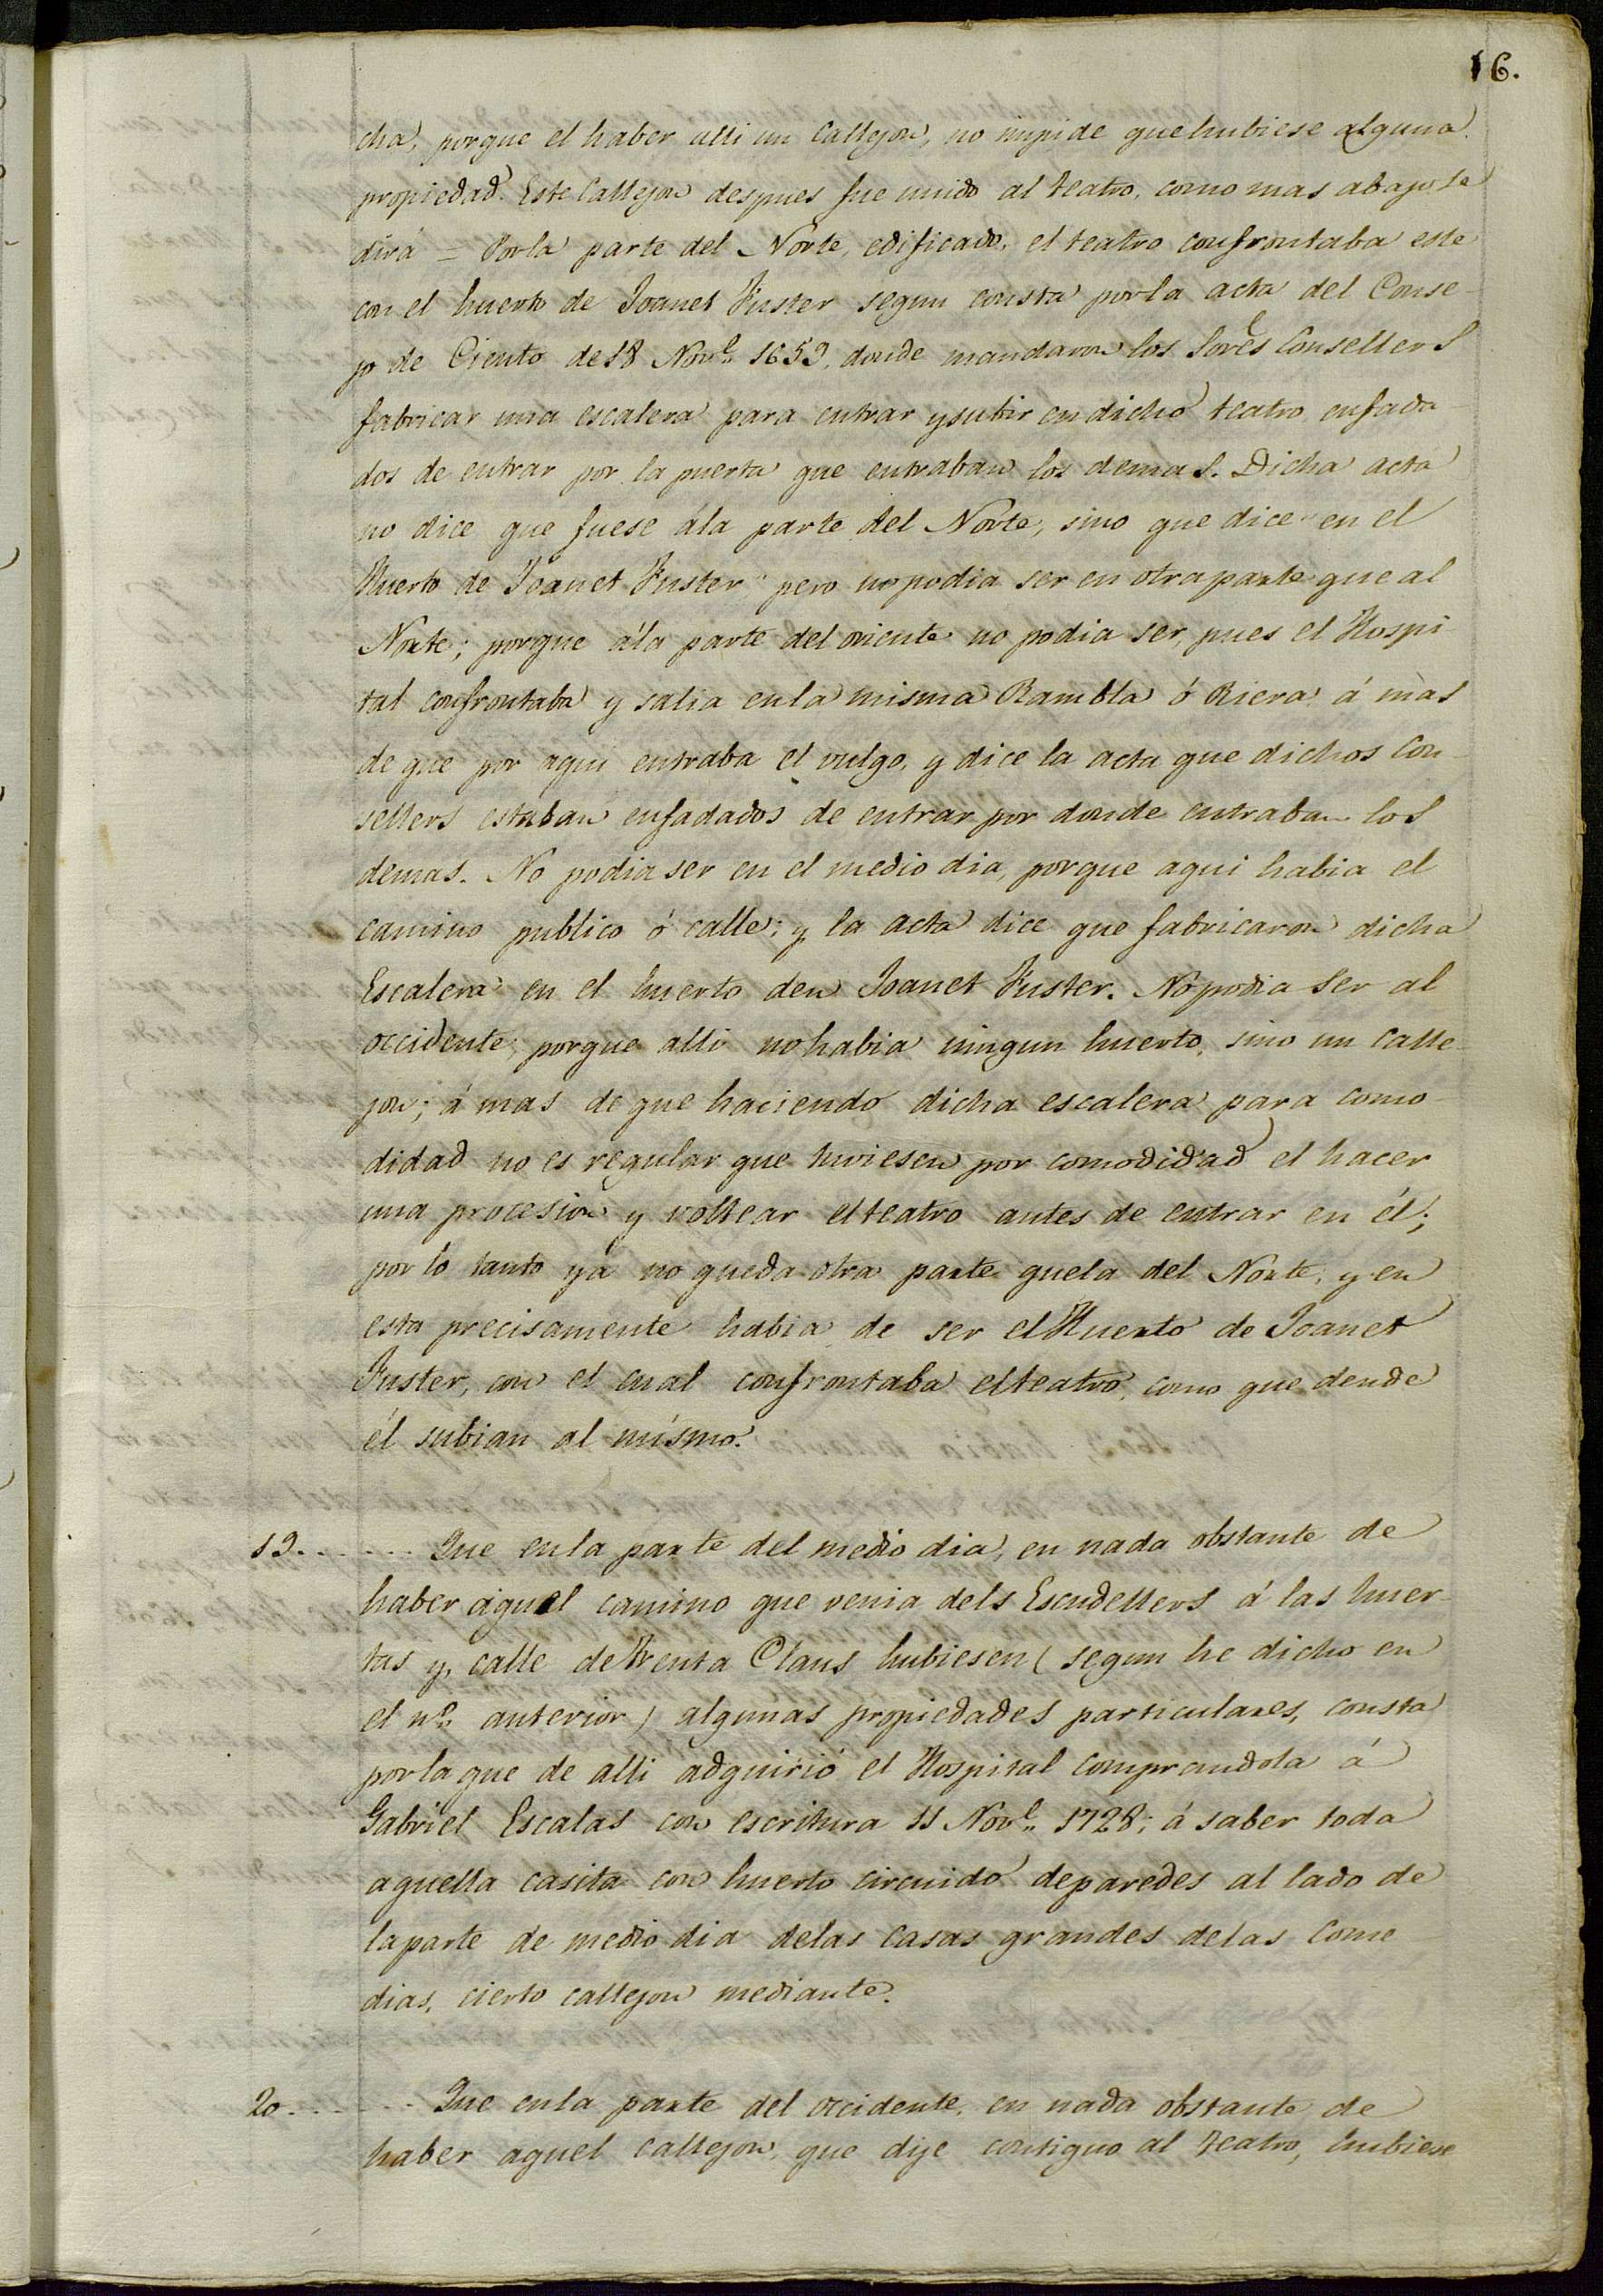 16.
cha, porque el haber alli un Callejon, no impide que hubiese alguna
propiedad. Este Callejon despues fue unido al teatro, como mas abajo se
dirá = Por la parte del Norte, edificado, el teatro confrontaba este
con el huerto de Joanet Fuster segun consta por la acta del Conse-
jo de Ciento de 18 Nov.e 1659, donde mandaron los Sores Consellers
fabricar una escalera para entrar y subir en dicho teatro enfada-
dos de entrar por la puerta que entraban los demas. Dicha acta
no dice que fuese á la parte del Norte, sino que dice "en el
Huerto de Joanet Fuster" pero no podia ser en otra parte que al
Norte; porque á la parte del oriente no podia ser, pues el Hospi-
tal confrontaba y salia en la misma Rambla ó Riera, á mas
de que por aqui entraba el vulgo, y dice la acta que dichos Con-
sellers estaban enfadados de entrar por donde entraban los
demas. No podia ser en el medio dia, porque aqui habia el
camino publico ó calle; y la acta dice que fabricaron dicha
Escalera en el huerto den Joanet Fuster. No podia ser al
occidente, porque alli no habia ningun huerto, sino un calle-
jon; á mas de que haciendo dicha escalera para como-
didad no es regular que tuviesen por comodidad el hacer
una procesion y voltear el teatro antes de entrar en él;
por lo tanto ya no queda otra parte que la del Norte, y en
esta precisamente habia de ser el Huerto de Joanet
Fuster, con el cual confrontaba el teatro, como que dende
él subian al mismo.
19....... Que en la parte del medio dia, en nada obstante de
haber aquel camino que venia dels Escudellers á las huer-
tas y calle de Trenta Claus hubiesen (segun he dicho en
el n.o anterior) algunas propiedades particulares, consta
por la que de alli adquirió el Hospital comprandola á
Gabriel Escalas con escritura 11 Nov.e 1728; á saber toda
aquella casita con huerto circuido de paredes al lado de
la parte de medio dia de las casas grandes de las Come
dias, cierto callejon mediante.
20....... Que en la parte del occidente, en nada obstante de
haber aquel callejon, que dije contiguo al teatro, hubiese